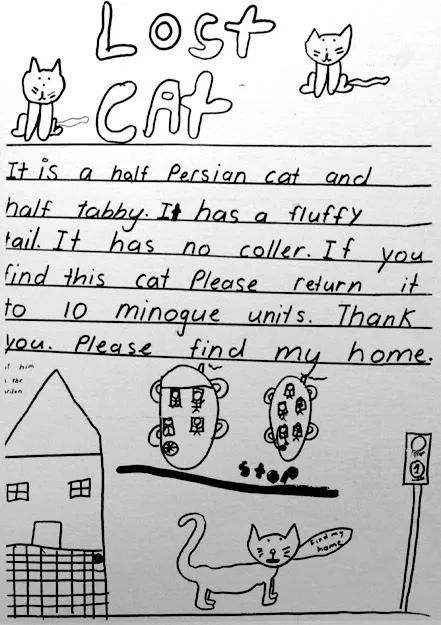 Lost
Cat
It is a half Persian cat and
half tabby. It has a fluffy
tail. It has no coller. If you
find this cat Please return it
to 10 minogue units. Thank
you. Please find my home.
him
the
stop
Find my
home